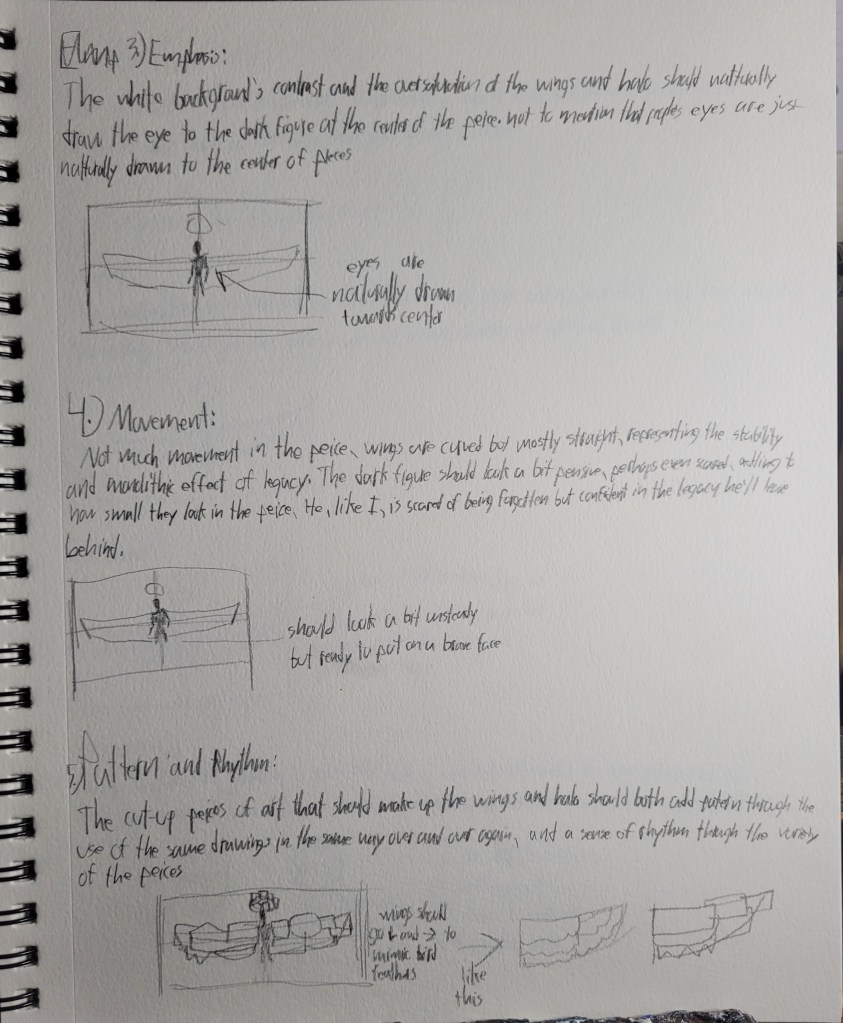 3.) Emphasis:
The white background's contrast and the oversaturation of the wings and halo should natturally
draw the eye to the dark figure at the center of the peice. not to mention that peoples eyes are just
natturally drawn to the center of pieces
eyes are
naturally drawn
towards center
4.) Movement:
Not much movement in the peice, wings are curved but mostly straight, representing the stability
and monolithic effect of legacy. The dark figure should look a bit pensive, perhaps even scared, adding to
how small they look in the peice. He, like I, is scared of being forgotten but confident in the legacy he'll leave
behind.
should look a bit unsteady
but ready to put on a brave face
5.) Pattern and Rhythm:
The cut-up peices of art that should make up the wings and halo should both add patern through the
use of the same drawings in the same way over and over again, and a sense of rhythm through the variety
of the peices
wings should
go out → to
mimic bird
feathers
like
this